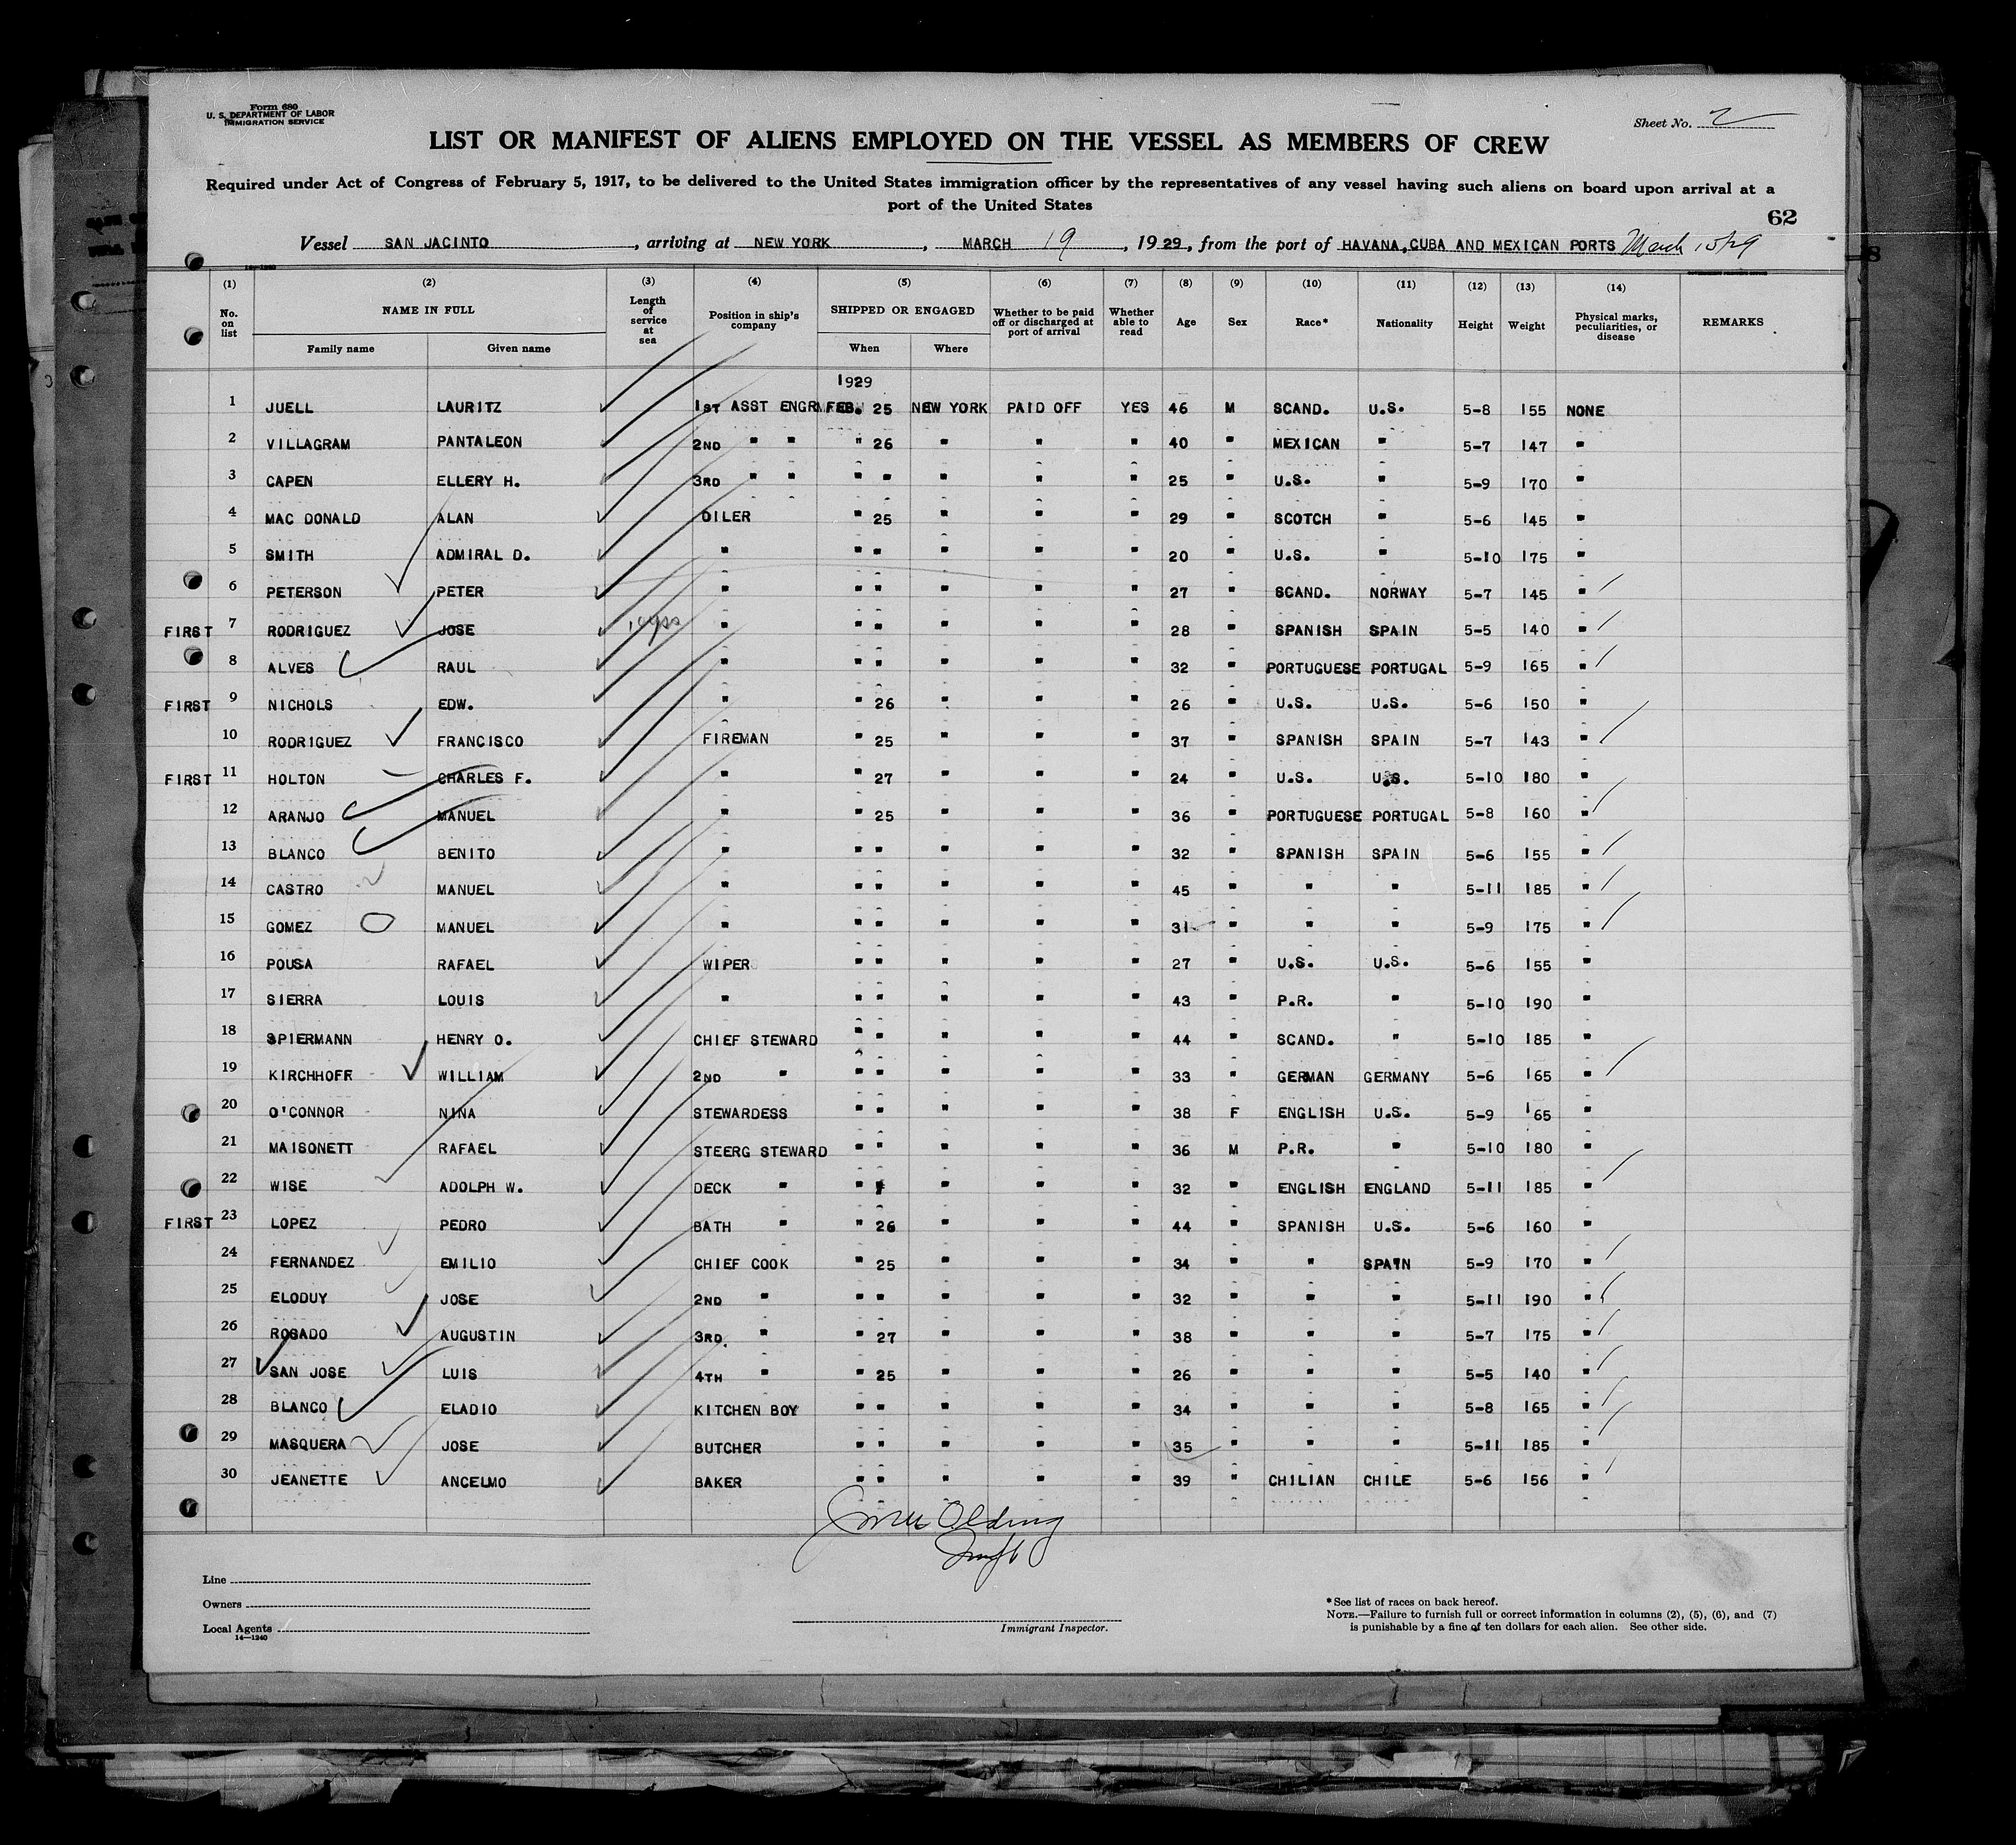 Form 680
U. S. DEPARTMENT OF LABOR
IMMIGRATION SERVICE
Sheet No. 2
LIST OR MANIFEST OF ALIENS EMPLOYED ON THE VESSEL AS MEMBERS OF CREW
Required under Act of Congress of February 5, 1917, to be delivered to the United States immigration officer by the representatives of any vessel having such aliens on board upon arrival at a
port of the United States
62
Vessel SAN JACINTO, arriving at NEW YORK, MARCH 19, 1929, from the port of HAVANA, CUBA AND MEXICAN PORTS March 15/29
(1) (2) (3) (4) (5) (6) (7) (8) (9) (10) (11) (12) (13) (14)
No. on list NAME IN FULL Length of service at sea Position in ship's company SHIPPED OR ENGAGED Whether to be paid off or discharged at port of arrival Whether able to read Age Sex Race* Nationality Height Weight Physical marks, peculiarities, or disease REMARKS
Family name Given name When Where
1929
1 JUELL LAURITZ 1ST ASST ENGR FEB. 25 NEW YORK PAID OFF YES 46 M SCAND. U.S. 5-8 155 NONE
2 VILLAGRAM PANTALEON 2ND " " " 26 " " " 40 " MEXICAN " 5-7 147 "
3 CAPEN ELLERY H. 3RD " " " " " " " 25 " U.S. " 5-9 170 "
4 MAC DONALD ALAN OILER " 25 " " " 29 " SCOTCH " 5-6 145 "
5 SMITH ADMIRAL D. " " " " " " 20 " U.S. " 5-10 175 "
6 PETERSON PETER " " " " " " 27 " SCAND. NORWAY 5-7 145 "
FIRST 7 RODRIGUEZ JOSE " " " " " " 28 " SPANISH SPAIN 5-5 140 "
8 ALVES RAUL " " " " " " 32 " PORTUGUESE PORTUGAL 5-9 165 "
FIRST 9 NICHOLS EDW. " " 26 " " " 26 " U.S. U.S. 5-6 150 "
10 RODRIGUEZ FRANCISCO FIREMAN " 25 " " " 37 " SPANISH SPAIN 5-7 143 "
FIRST 11 HOLTON CHARLES F. " " 27 " " " 24 " U.S. U.S. 5-10 180 "
12 ARANJO MANUEL " " 25 " " " 36 " PORTUGUESE PORTUGAL 5-8 160 "
13 BLANCO BENITO " " " " " " 32 " SPANISH SPAIN 5-6 155 "
14 CASTRO MANUEL " " " " " " 45 " " " 5-11 185 "
15 GOMEZ MANUEL " " " " " " 31 " " " 5-9 175 "
16 POUSA RAFAEL WIPER " " " " " 27 " U.S. U.S. 5-6 155 "
17 SIERRA LOUIS " " " " " " 43 " P.R. " 5-10 190 "
18 SPIERMANN HENRY O. CHIEF STEWARD " " " " " 44 " SCAND. " 5-10 185 "
19 KIRCHHOFF WILLIAM 2ND " " " " " " 33 " GERMAN GERMANY 5-6 165 "
20 O'CONNOR NINA STEWARDESS " " " " " 38 F ENGLISH U.S. 5-9 165 "
21 MAISONETT RAFAEL STEERG STEWARD " " " " " 36 M P.R. " 5-10 180 "
22 WISE ADOLPH W. DECK " " " " " " 32 " ENGLISH ENGLAND 5-11 185 "
FIRST 23 LOPEZ PEDRO BATH " " 26 " " " 44 " SPANISH U.S. 5-6 160 "
24 FERNANDEZ EMILIO CHIEF COOK " 25 " " " 34 " " SPAIN 5-9 170 "
25 ELODUY JOSE 2ND " " " " " " 32 " " " 5-11 190 "
26 ROSADO AUGUSTIN 3RD " " 27 " " " 38 " " " 5-7 175 "
27 SAN JOSE LUIS 4TH " " 25 " " " 26 " " " 5-5 140 "
28 BLANCO ELADIO KITCHEN BOY " " " " " 34 " " " 5-8 165 "
29 MASQUERA JOSE BUTCHER " " " " " 35 " " " 5-11 185 "
30 JEANETTE ANCELMO BAKER " " " " " 39 " CHILIAN CHILE 5-6 156 "
Line
Owners
Local Agents
14—1240
Immigrant Inspector.
*See list of races on back hereof.
NOTE.—Failure to furnish full or correct information in columns (2), (5), (6), and (7)
is punishable by a fine of ten dollars for each alien. See other side.